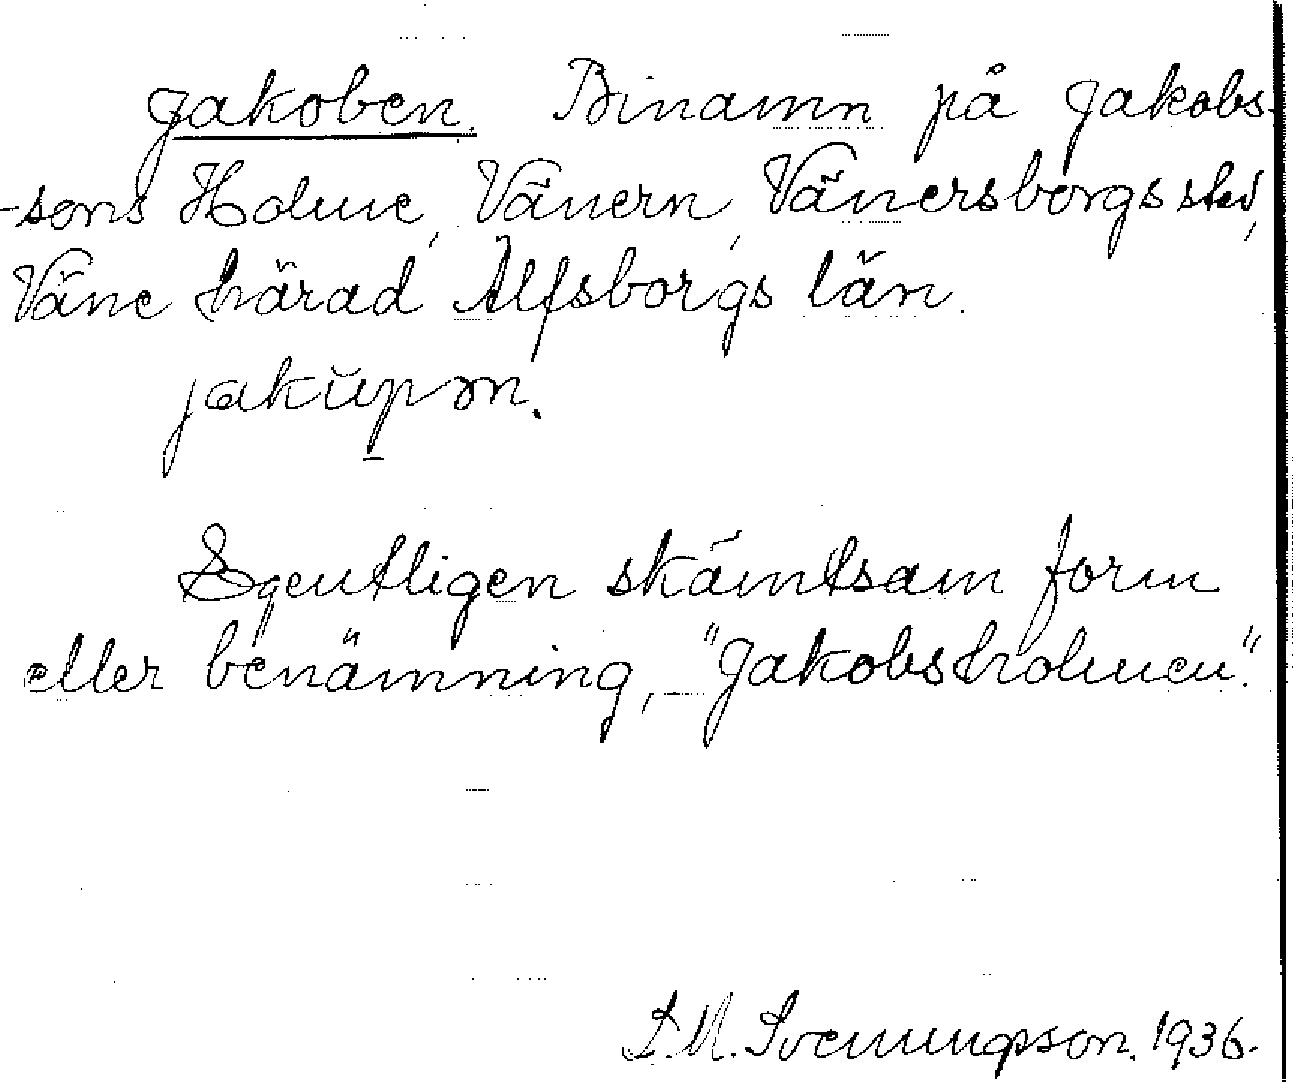 Jakoben. Binamn på Jakobs-
-sons Holme, Vänern, Vänersborgs skd,
Väne härad Älfsborgs län.
jakŭpən.
Egentligen skämtsam form
eller benämning, "Jakobsholmen".
S.M. Svenungsson. 1936.